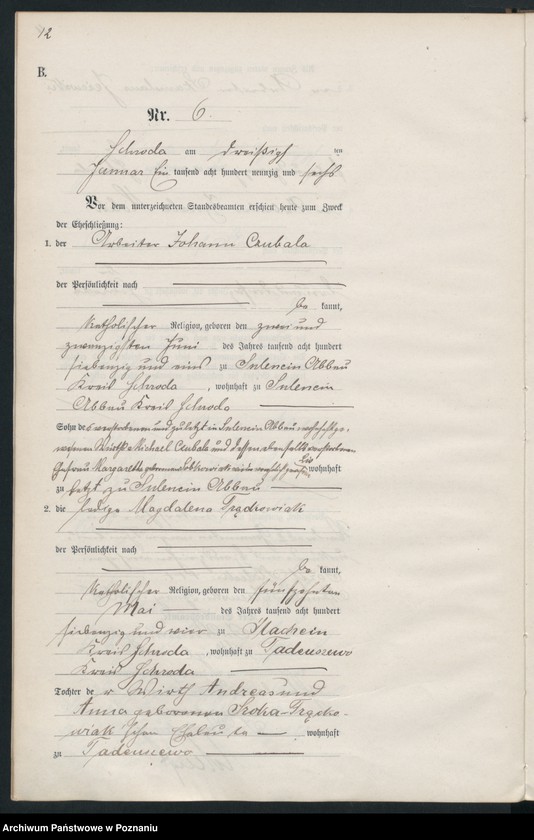 12
B.
Nr. 6.
Schroda am dreißigsten
Januar Ein tausend acht hundert neunzig und sechs
Vor dem unterzeichneten Standesbeamten erschien heute zum Zweck
der Eheschließung:
1. der Arbeiter Johann Czubala
der Persönlichkeit nach
be kannt,
katholischer Religion, geboren den zwei und
zwanzigsten Juni des Jahres tausend acht hundert
siebenzig und eins zu Sulencin Abbau
Kreis Schroda, wohnhaft zu Sulencin
Abbau Kreis Schroda
Sohn des verstorbenen und zuletzt in Sulencin Abbau wohnhaft ge-
wesenen Wirths Michael Czubala und dessen ebenfalls verstorbenen
Ehefrau Margaretha geborenen wohnhaft
zu letzt zu Sulencin Abbau
2. die ledige Magdalena Frąckowiak
der Persönlichkeit nach
be kannt,
katholischer Religion, geboren den fünfzehnten
Mai des Jahres tausend acht hundert
siebenzig und vier zu
Kreis Schroda, wohnhaft zu Tadeuszewo
Kreis Schroda
Tochter der Wirth Andreas und
Anna geborenen Sroka-Frącko-
wiak'schen Eheleute wohnhaft
zu Tadeuszewo
Archiwum Państwowe w Poznaniu